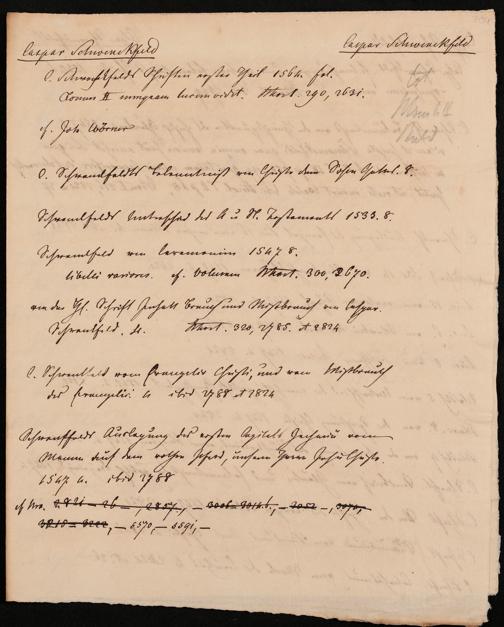 Caspar Schwenckfeld Caspar Schwenckfeld
C. Schwenckfelds Schriften erster Theil 1564. fol.
Tomus II nunquam lucem vidit. 290, 2631.
cf. Joh. Wörner
C. Schwenckfeldts Bekenntniß von Christo dem Sohn Gottes. 8.
Schwenckfelds Unterschied des A u. N. Testaments 1533. 8.
Schwenckfeld von Ceremonien 1547 8.
libelli variores. cf. volumen 300, 2670.
von der Hl. Schrift Inhalt Brauch und Mißbrauch von Caspar
Schwenckfeld. 4. 320, 2785. et 2824
C. Schwenckfeld vom Evangelio Christi, und vom Mißbrauch
des Evangelii. 4 ibid 2788 et 2824
Schwenckfelds Auslegung des ersten Capitels Zachariä vom
Manne auf dem rothen Pferd, unserm Herrn Jesu Christo.
1547 4. ibid 2788
cf Nro. 2857, — 3052 —, 3070,
— 5570, — 5591, —